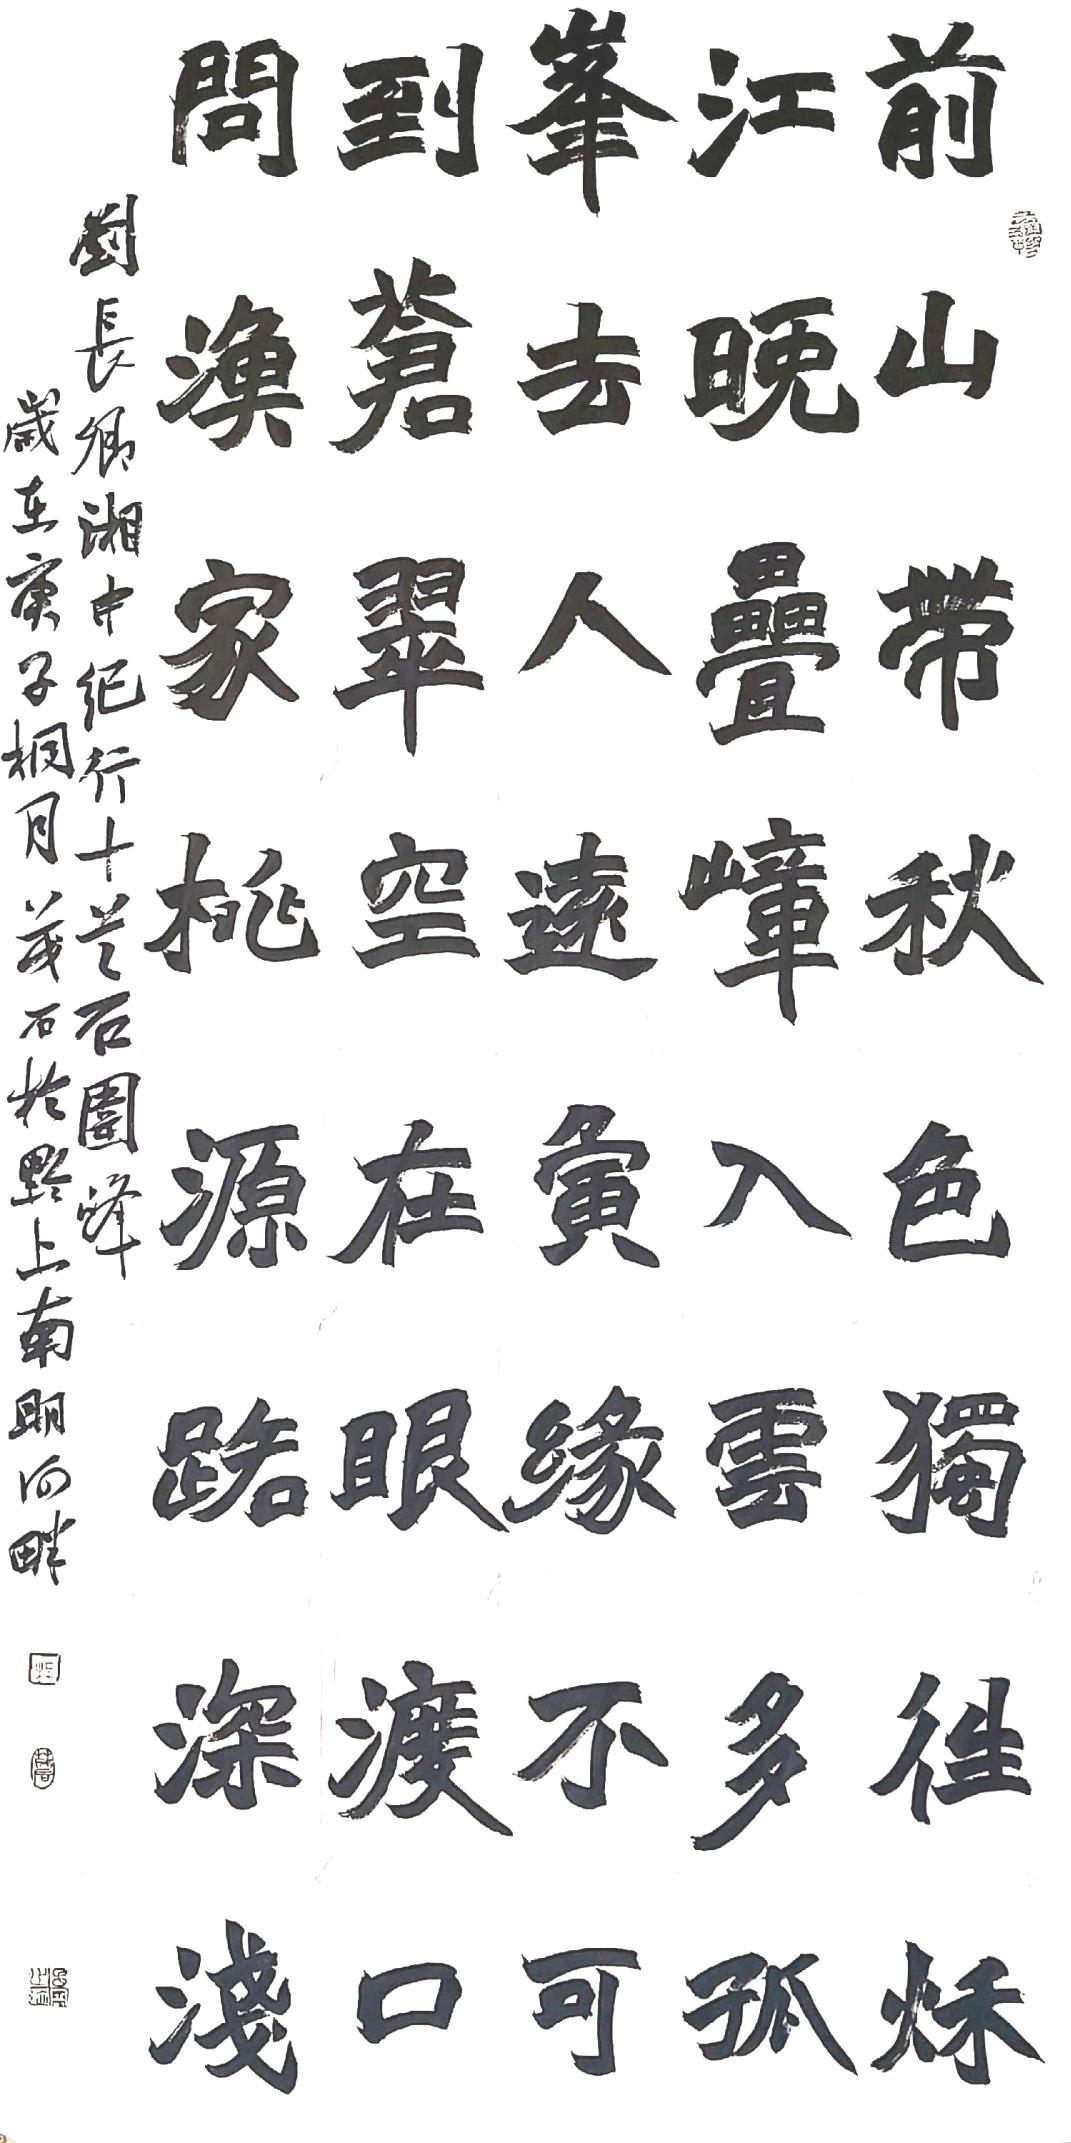 前山帶秋色獨徃秌
江晚疊嶂入雲多孤
峯去人遠夤緣不可
到蒼翠空在眼渡口
問漁家桃源路深淺
劉長卿湘中紀行十首石圍峰
歲在庚子桐月茂石於黔上南明河畔